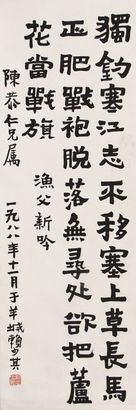 獨釣寒江志不移塞上草長馬
正肥戰袍脱落無尋處欲把蘆
花當戰旗
漁父新吟
陳恭仁兄属
一九八八年十一月于羊城賴少其